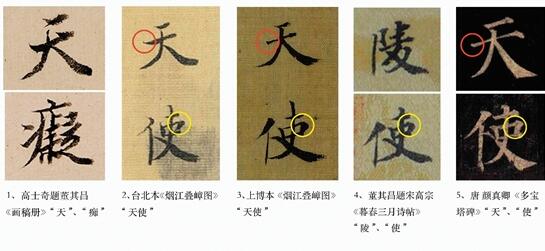 天
癡
天
使
天
使
陵
使
天
使
1、高士奇题董其昌
《画稿册》“天”、“痴”
2、台北本《烟江叠嶂图》
“天使”
3、上博本《烟江叠嶂图》
“天使”
4、董其昌题宋高宗
《暮春三月诗帖》
“陵”、“使”
5、唐 颜真卿《多宝
塔碑》“天”、“使”